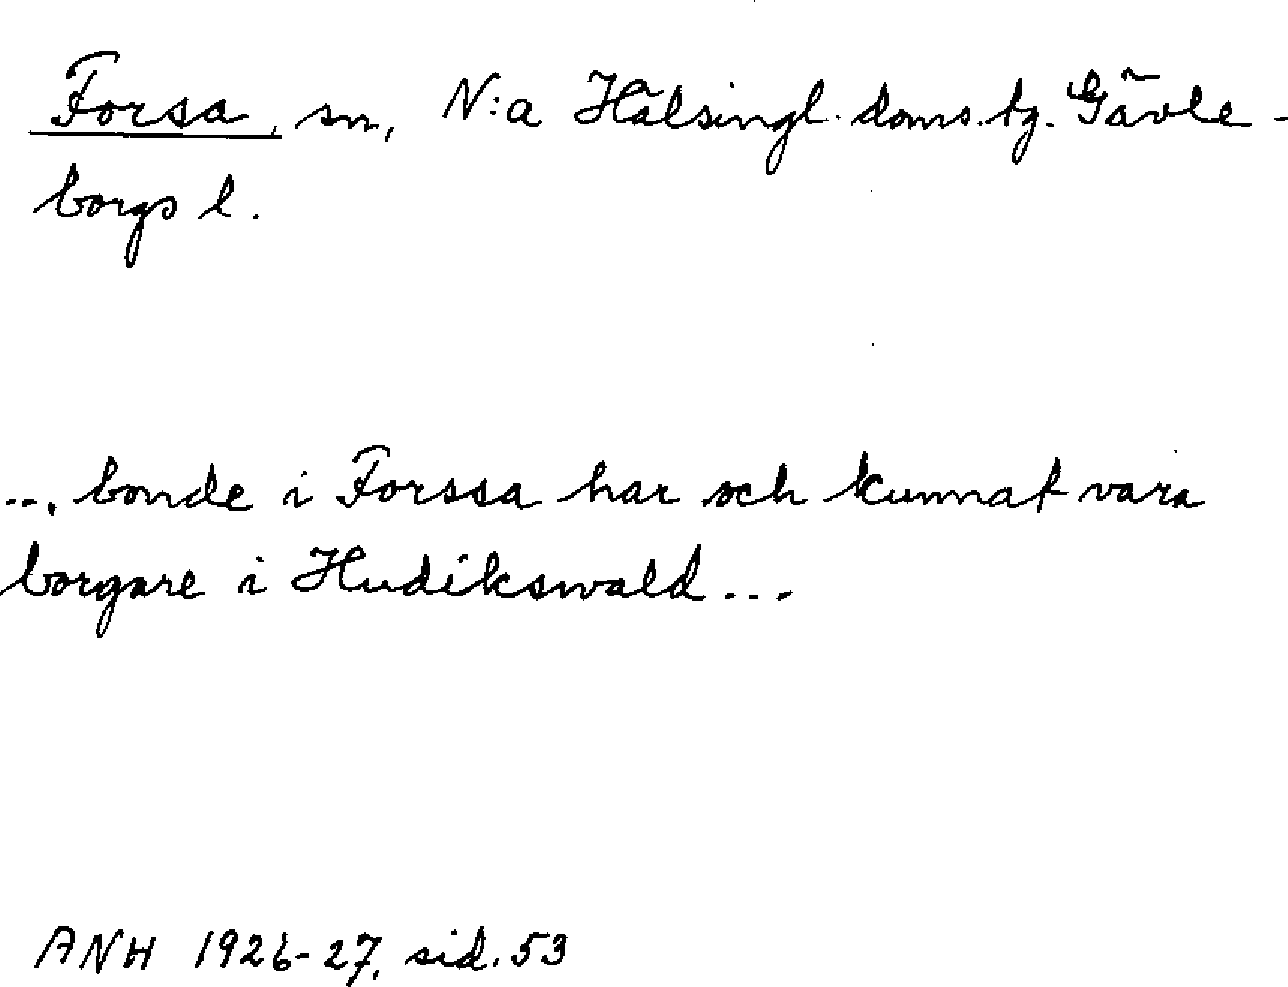 Forsa, sn, N:a Hälsingl. doms. tg. Gävle-
borgs l.
... bonde i Forssa har och kunnat vara
borgare i Hudikswald...
ANH 1926-27, sid. 53